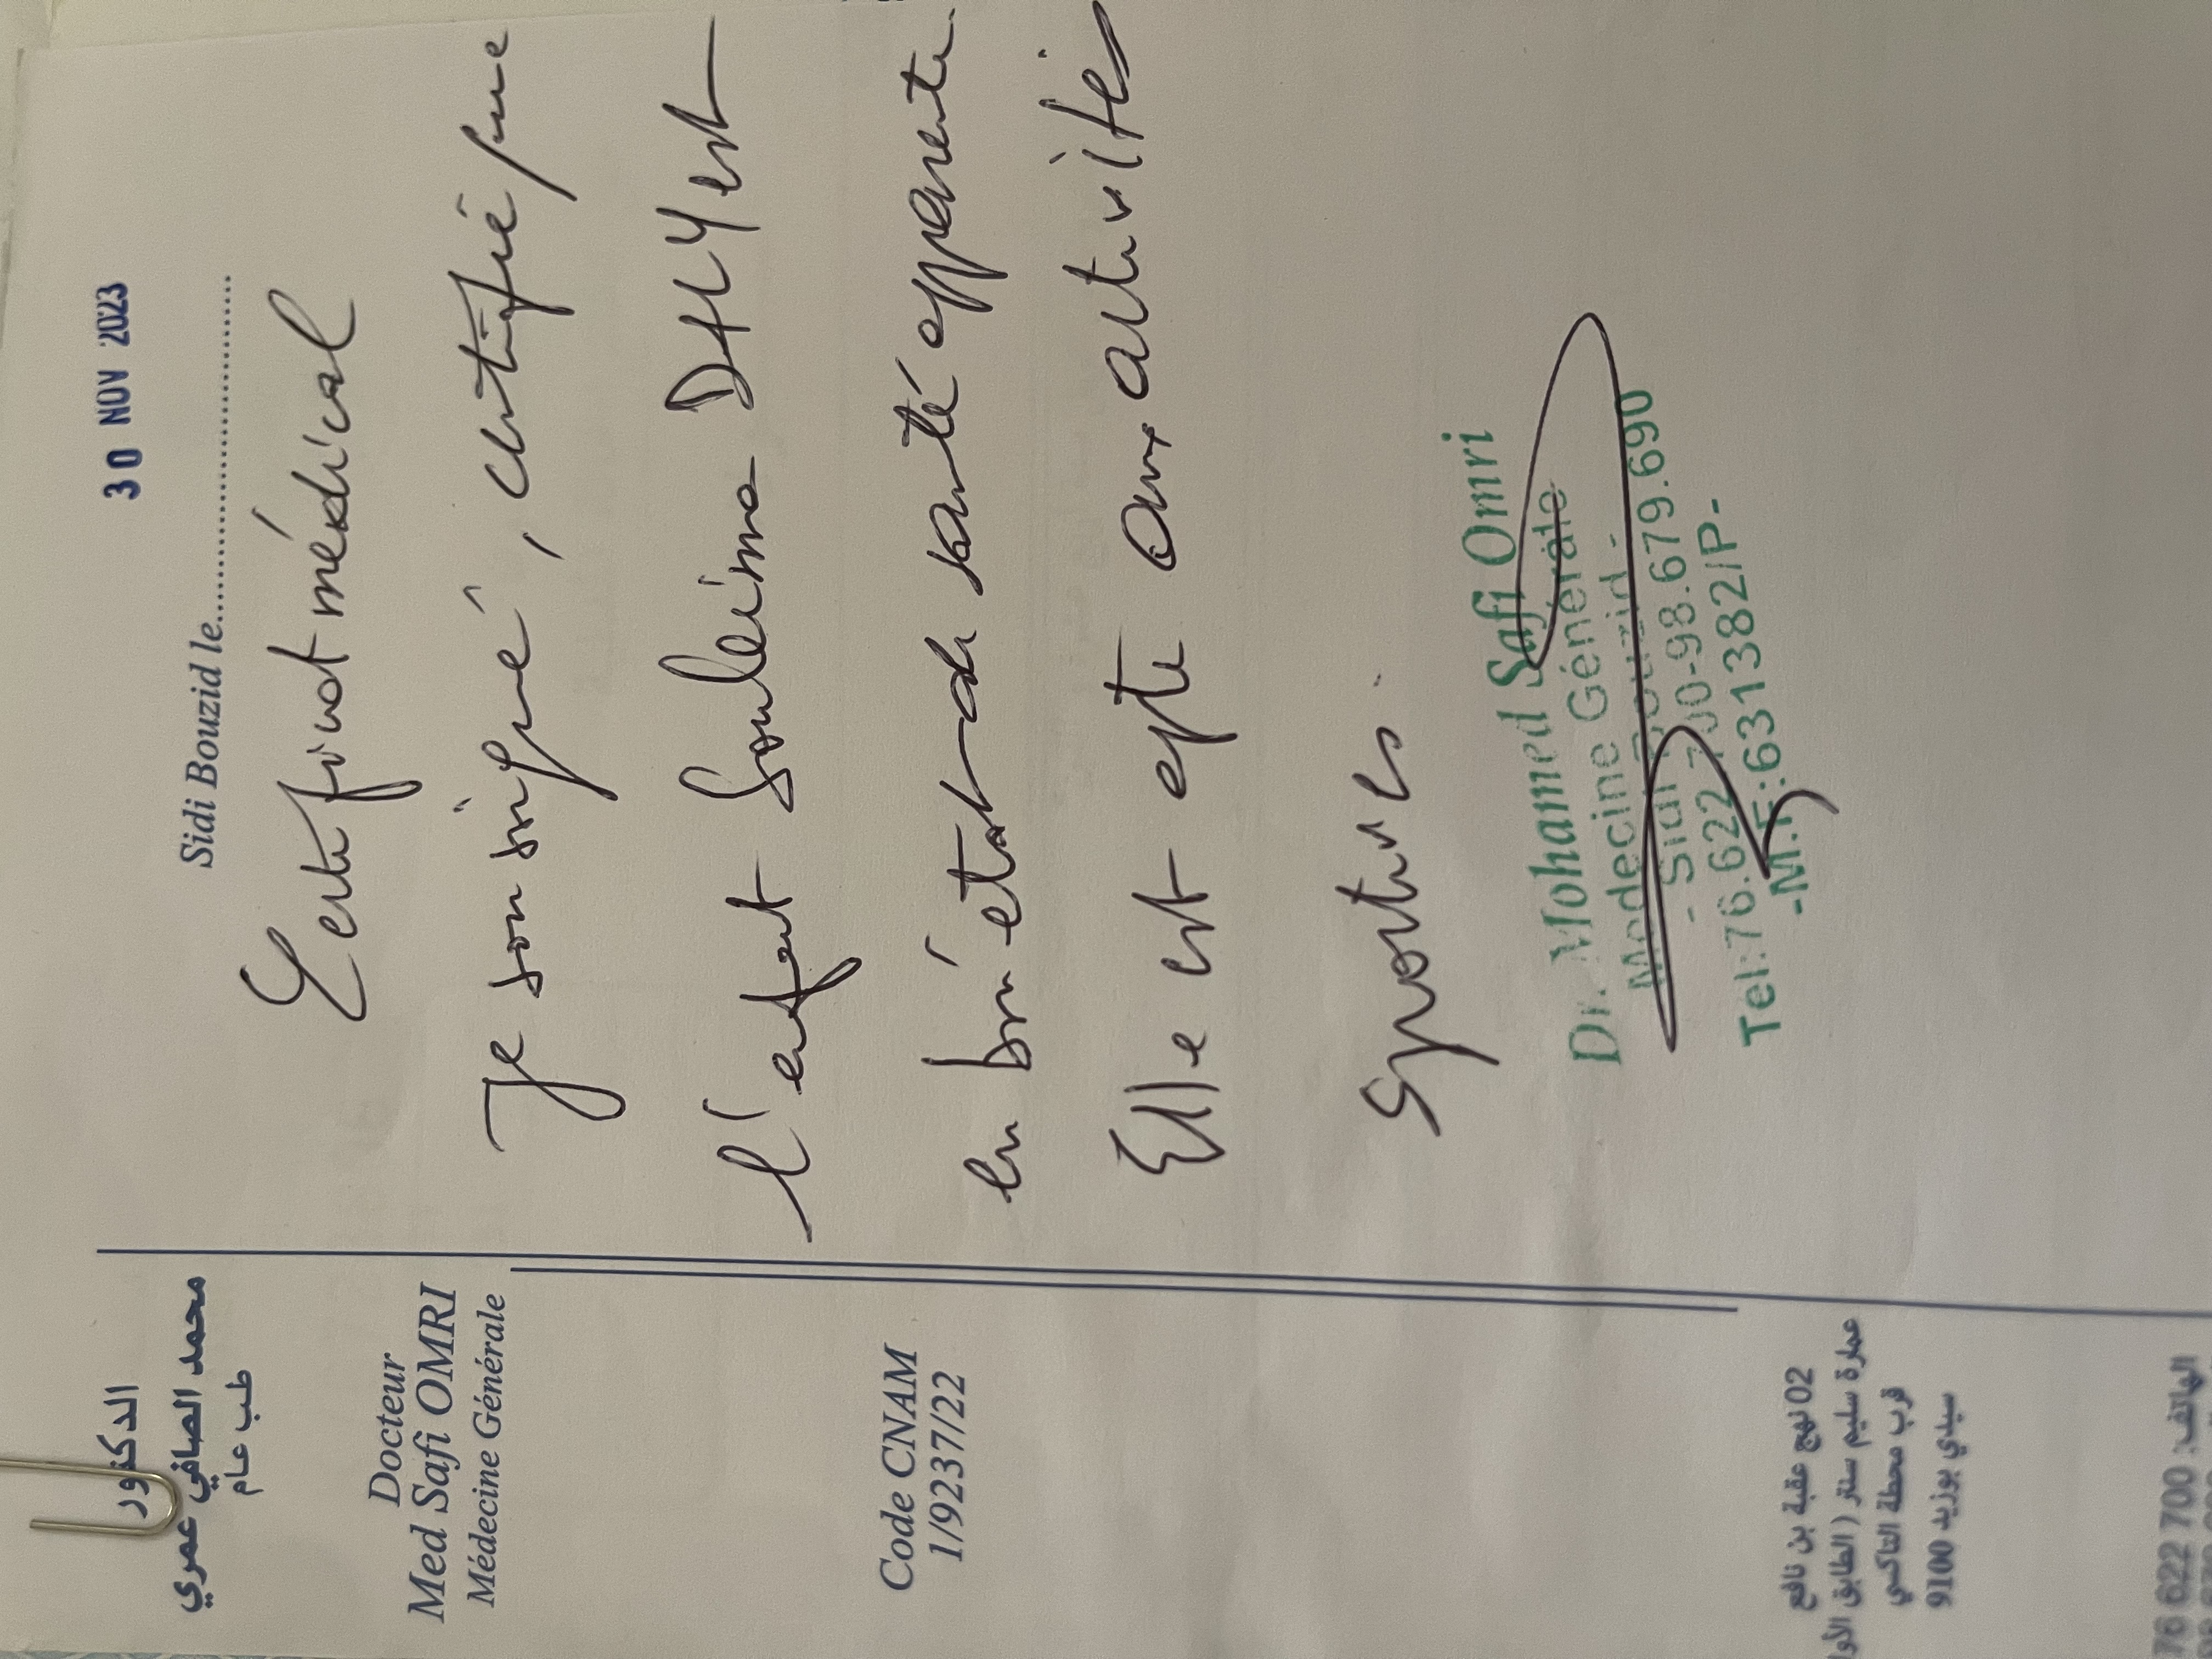 الدكتور
محمد الصافي عمري
طب عام
Docteur
Med Safi OMRI
Médecine Générale
Code CNAM
1/9237/22
02 نهج عقبة بن نافع
عمارة سليم سنتر ( الطابق الأو
قرب محطة التاكسي
سيدي بوزيد 9100
الهاتف: 700 622 76
30 NOV 2023
Sidi Bouzid le
Certificat médical
Je soussigné, certifié que
l'enfant Souleima DHLY est
en bon état de santé apparente
Elle est apte aux activités
Sportives.
Dr. Mohamed Safi Omri
Médecine Générale
- Sidi Bouzid -
Tel:76.622.700-98.679.690
-M.F:631382/P-